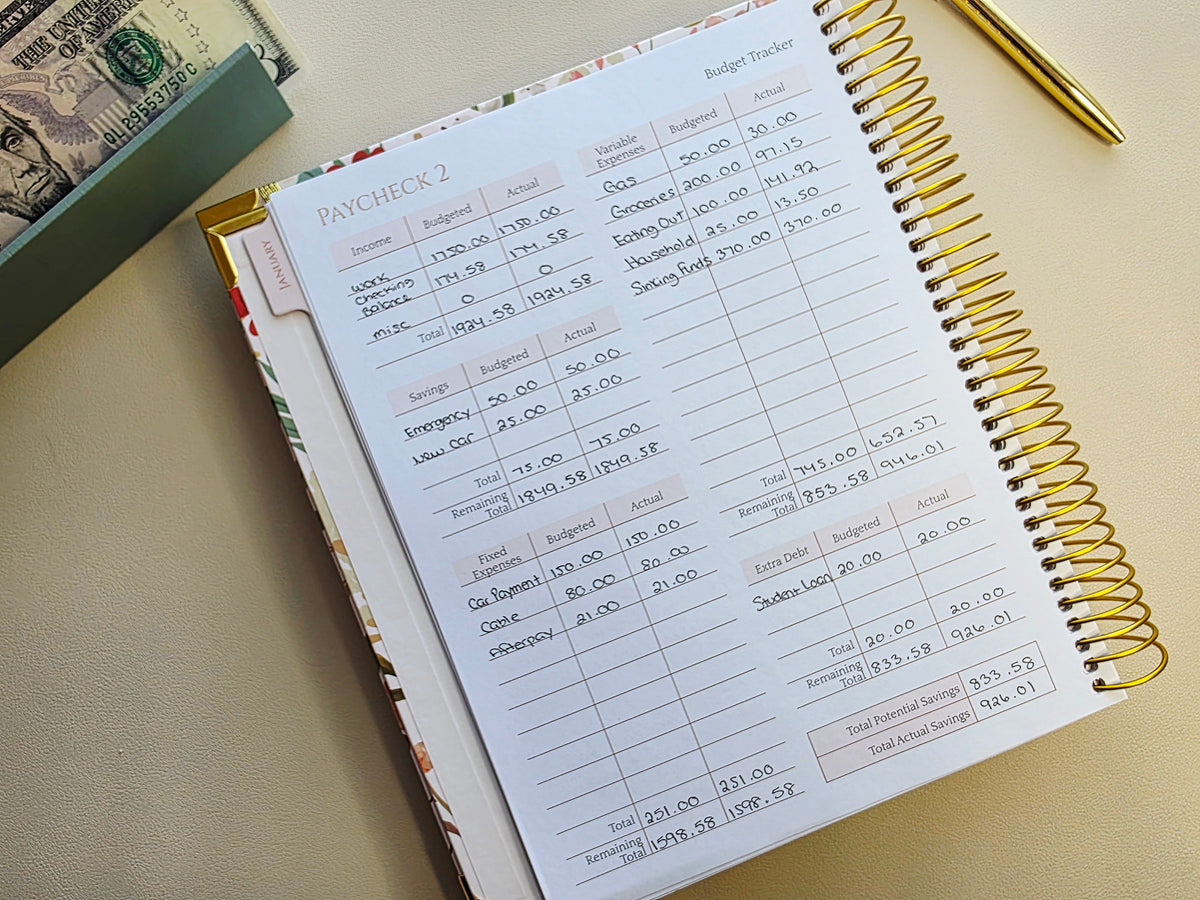 THE UNITED
OF AMERICA
QL89553750C
Budget Tracker
PAYCHECK 2
JANUARY
Income Budgeted Actual
Work 1750.00 1750.00
Checking Balance 174.58 174.58
misc 0 0
Total 1924.58 1924.58
Savings Budgeted Actual
Emergency 50.00 50.00
New Car 25.00 25.00
Total 75.00 75.00
Remaining Total 1849.58 1849.58
Fixed Expenses Budgeted Actual
Car Payment 150.00 150.00
Cable 80.00 80.00
Afterpay 21.00 21.00
Total 251.00 251.00
Remaining Total 1598.58 1598.58
Variable Expenses Budgeted Actual
Gas 50.00 30.00
Groceries 200.00 97.15
Eating Out 100.00 141.92
Household 25.00 13.50
Sinking Funds 370.00 370.00
Total 745.00 652.57
Remaining Total 853.58 946.01
Extra Debt Budgeted Actual
Student Loan 20.00 20.00
Total 20.00 20.00
Remaining Total 833.58 926.01
Total Potential Savings 833.58
Total Actual Savings 926.01